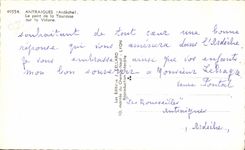 49554 ANTRAIGUES (Ardèche)
Le pont de la Tourasse
sur la Volane.
souhaitant de tout cœur une bonne
réponse qui vous amènera dans l'Ardèche
je vous embrasse ainsi que vos enfants.
mon bon souvenir à Monsieur
"Les Roussilles"
Antraigues
Ardèche